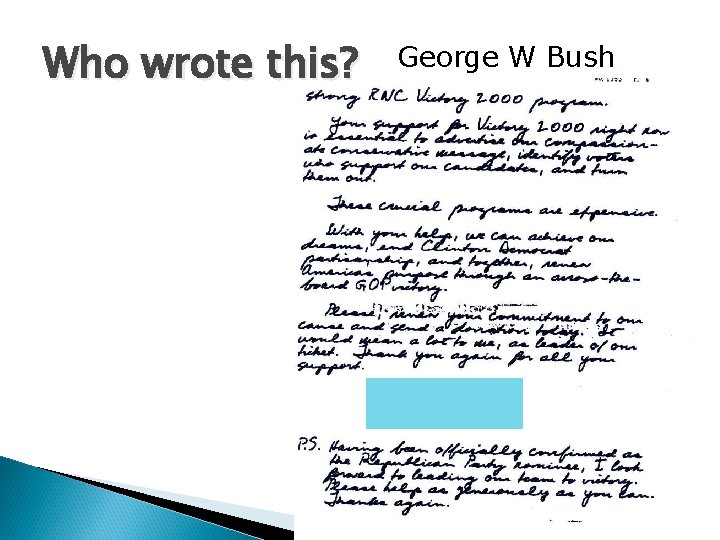 Who wrote this?
George W Bush
strong RNC Victory 2000 program.
Your support for Victory 2000 right now
is essential to advertise our compassion-
ate conservative message, identify voters
who support our candidates, and turn
them out.
These crucial programs are expensive.
With your help, we can achieve our
dreams, end Clinton Democrat
partisanship, and together, renew
America's purpose through an across-the-
board GOP victory.
Please, renew your commitment to our
cause and send a donation today. It
would mean a lot to me, as leader of our
ticket. Thank you again for all your
support.
P.S. Having been officially confirmed as
the Republican Party nominee, I look
forward to leading our team to victory.
Please help as generously as you can.
Thanks again.